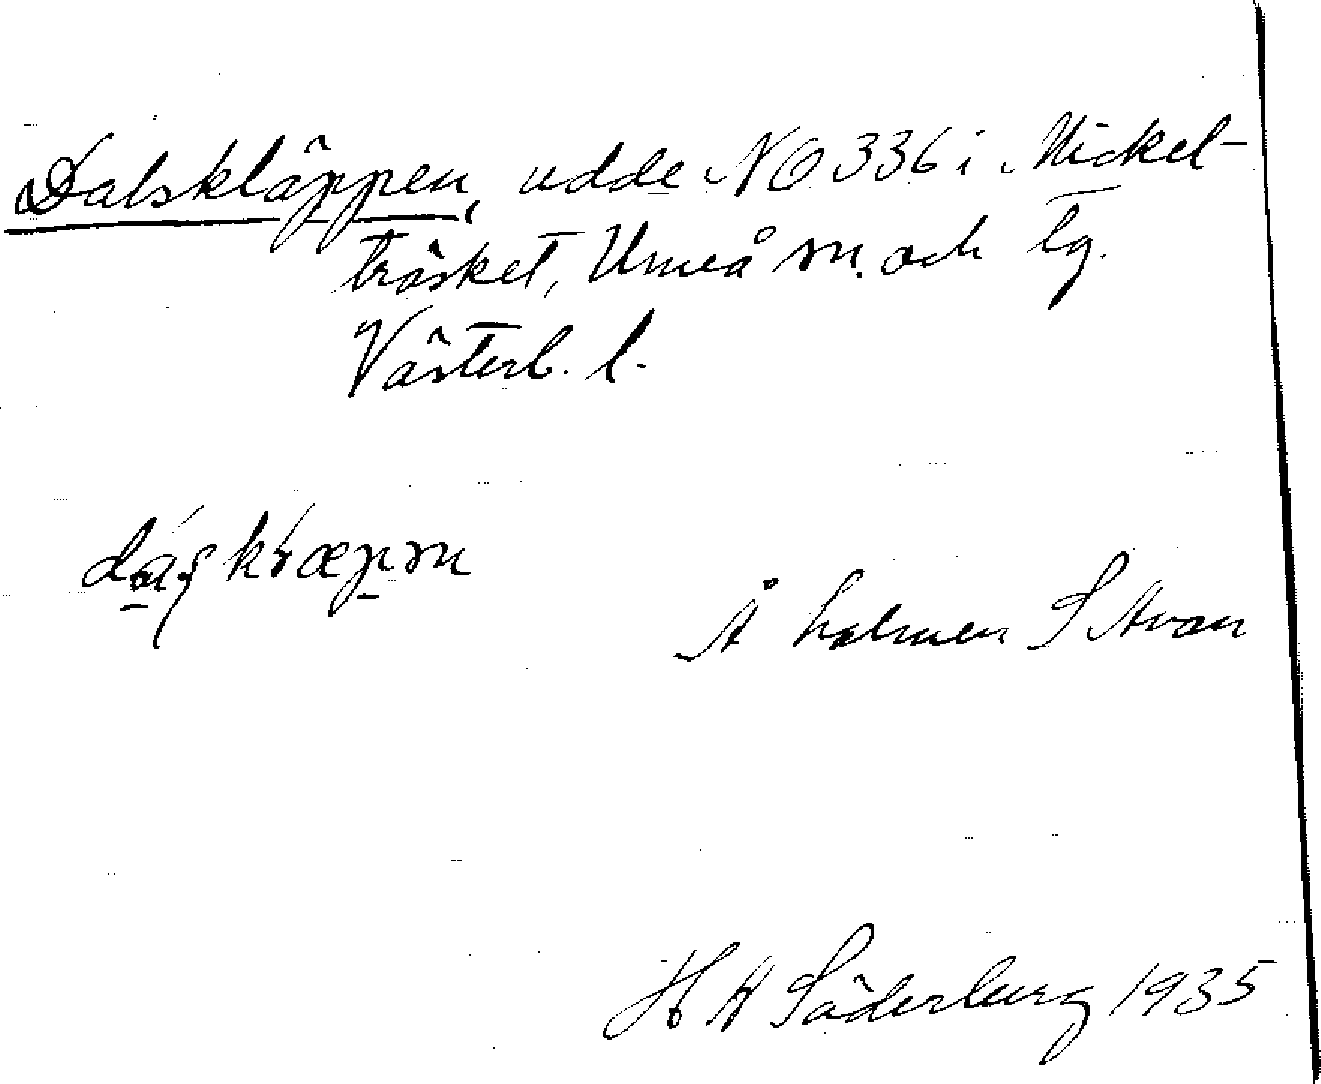 Dalskläppen, udde NO 336 i Mickel-
träsket, Umeå sn. och tg.
Västerb. l.
Å holmen S Avan
H A Söderberg 1935